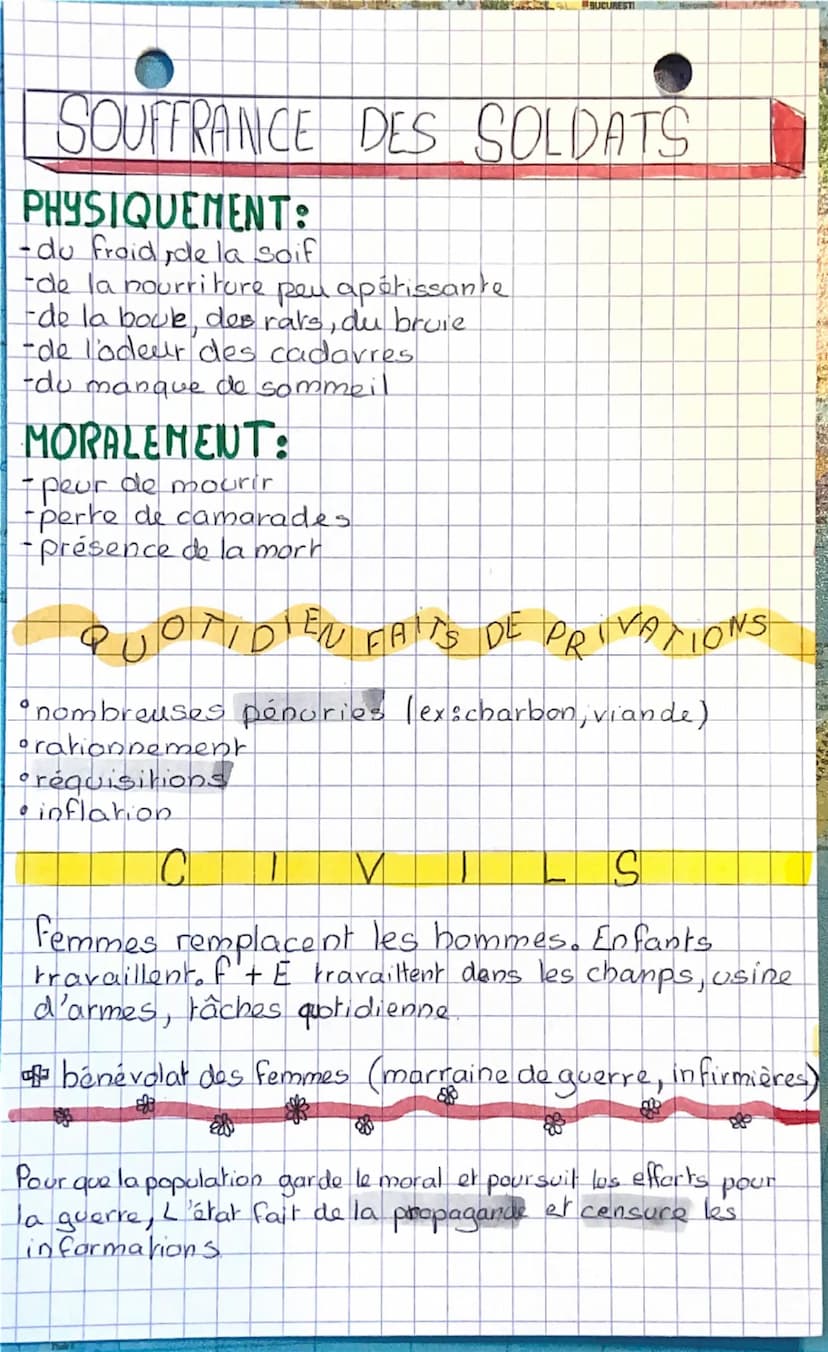 BUCURESTI
SOUFFRANCE DES SOLDATS
PHYSIQUEMENT:
-du froid, de la soif
-de la nourriture peu apétissante
-de la boue, des rats, du bruie
-de l'odeur des cadavres
-du manque de sommeil
MORALEMENT:
-peur de mourir
-perte de camarades
-présence de la mort
QUOTIDIEN FAITS DE PRIVATIONS
•nombreuses pénuries (ex:charbon, viande)
•rationnement
•réquisitions
•inflation
CIVILS
Femmes remplacent les hommes. Enfants
travaillent. F + E travaillent dans les champs, usine
d'armes, tâches quotidienne.
+ bénévolat des femmes (marraine de guerre, infirmières)
Pour que la population garde le moral et poursuit les efforts pour
la guerre, L'état fait de la propagande et censure les
informations